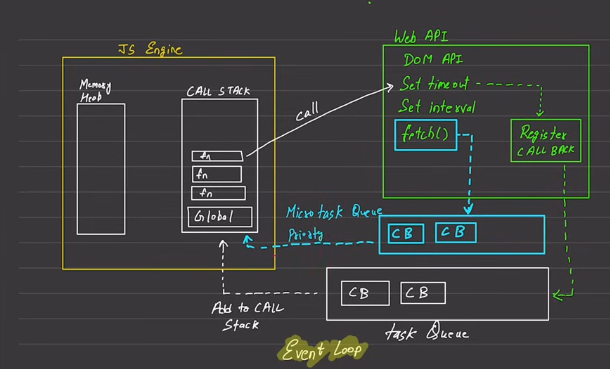 JS Engine
Memory
Heab
CALL STACK
fn
fn
fn
Global
call
Web API
DOM API
Set timeout
Set interval
fetch()
Register
CALL BACK
Microtask Queue
Priority
CB
CB
Add to CALL
Stack
CB
CB
task Queue
Event Loop